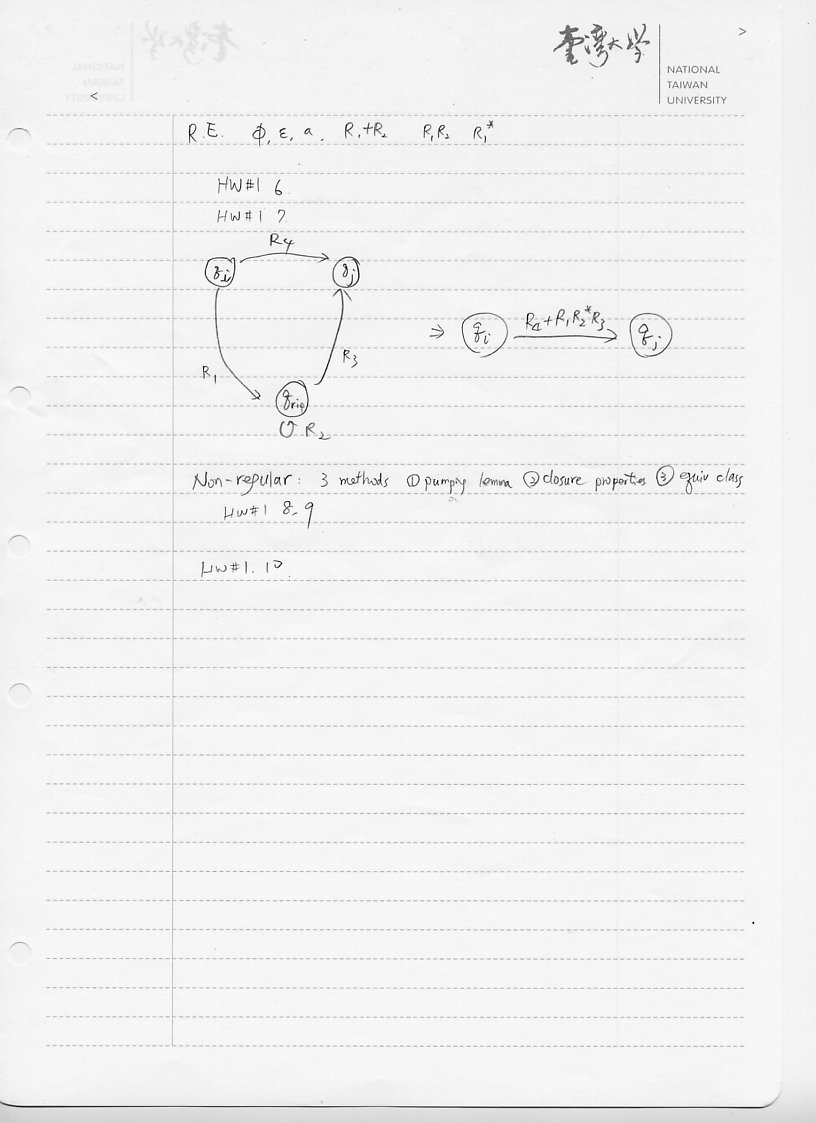 臺灣大學
NATIONAL
TAIWAN
UNIVERSITY
>
<
R.E. ϕ, ε, a, R₁+R₂ R₁R₂ R₁*
HW#1 6.
HW#1 7.
R₄
qᵢ
qⱼ
R₁
R₃
q_rip
R₂
⇒ qᵢ R₄+R₁R₂*R₃ qⱼ
Non-regular: 3 methods ① pumping lemma ② closure properties ③ equiv class
HW#1 8, 9
HW#1. 10.